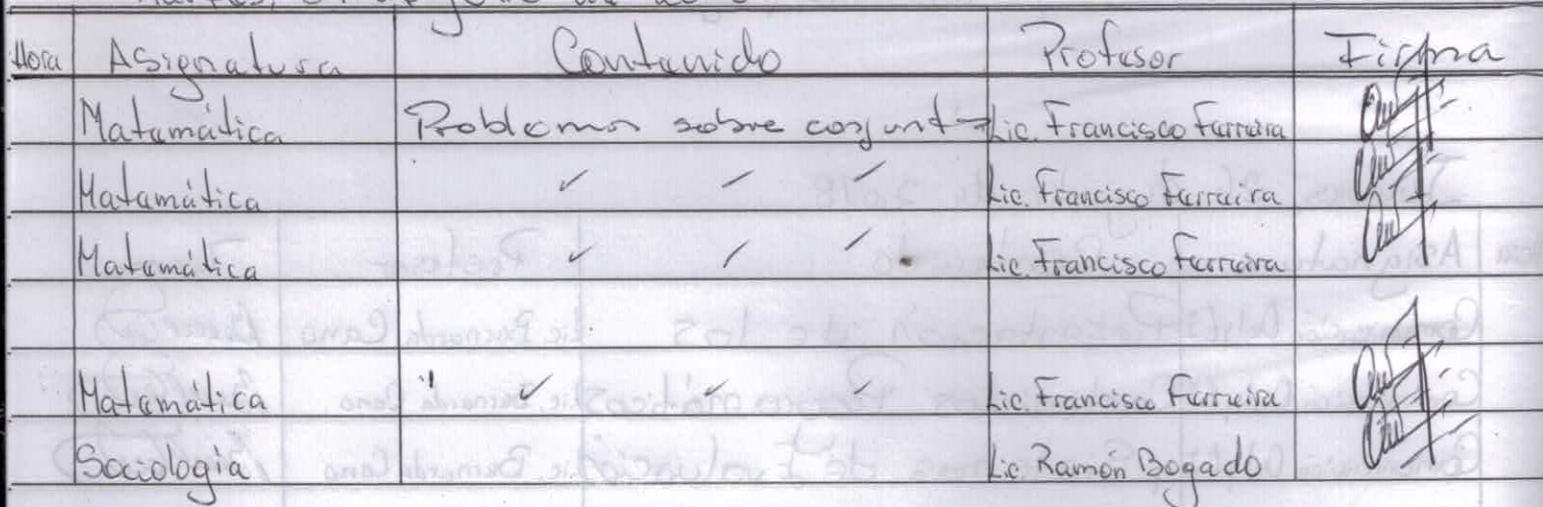 Hora Asignatura Contenido Profesor Firma
Matemática Problemas sobre conjunt Lic. Francisco Ferreira
Matemática ✓ / / Lic. Francisco Ferreira
Matemática ✓ / / Lic. Francisco Ferreira
Matemática " ✓ ✓ ✓ Lic. Francisco Ferreira
Sociologia Lic. Ramón Bogado